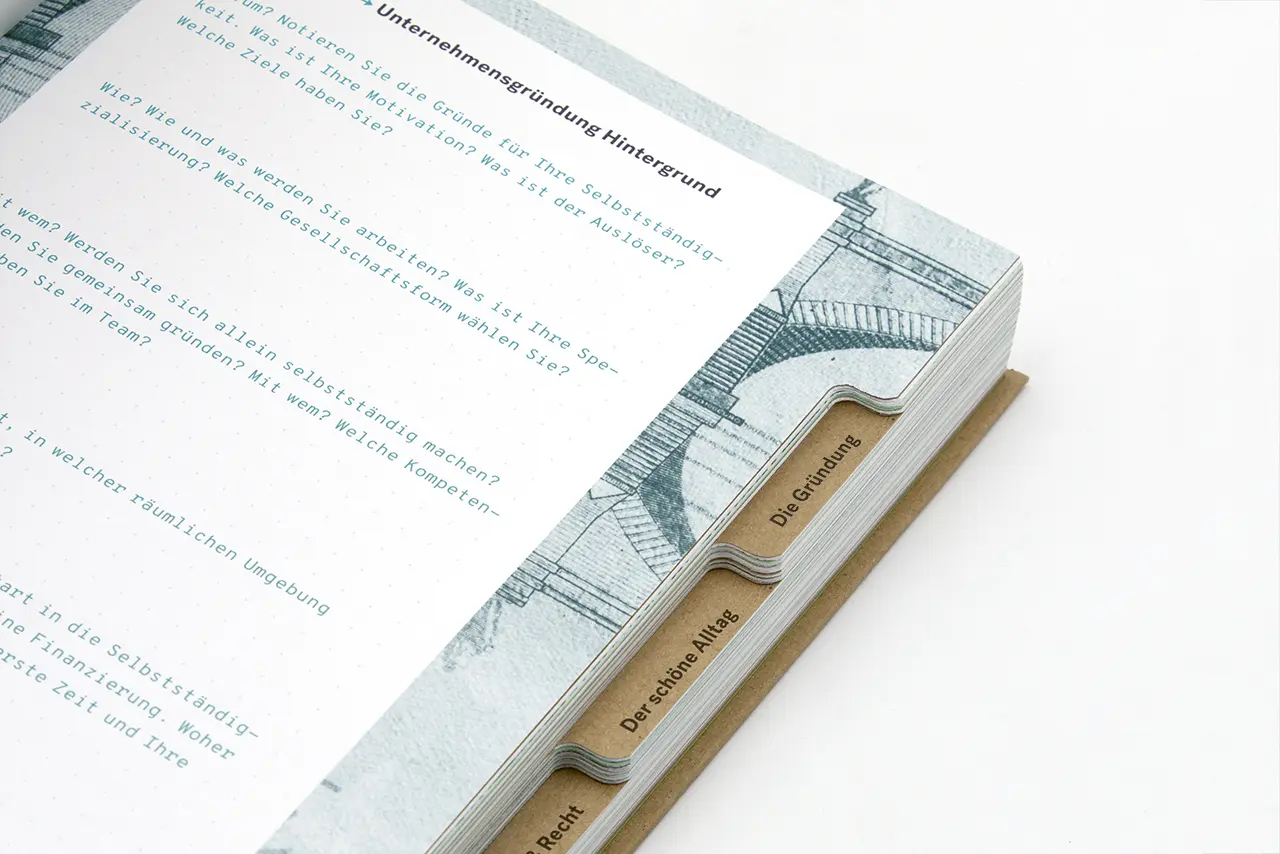 Unternehmensgründung Hintergrund
Notieren Sie die Gründe für Ihre Selbstständig–
keit. Was ist Ihre Motivation? Was ist der Auslöser?
Welche Ziele haben Sie?
Wie? Wie und was werden Sie arbeiten? Was ist Ihre Spe–
zialisierung? Welche Gesellschaftsform wählen Sie?
wem? Werden Sie sich allein selbstständig machen?
Sie gemeinsam gründen? Mit wem? Welche Kompeten–
Sie im Team?
in welcher räumlichen Umgebung
?
in die Selbstständig–
Finanzierung. Woher
erste Zeit und Ihre
Die Gründung
Der schöne Alltag
Recht